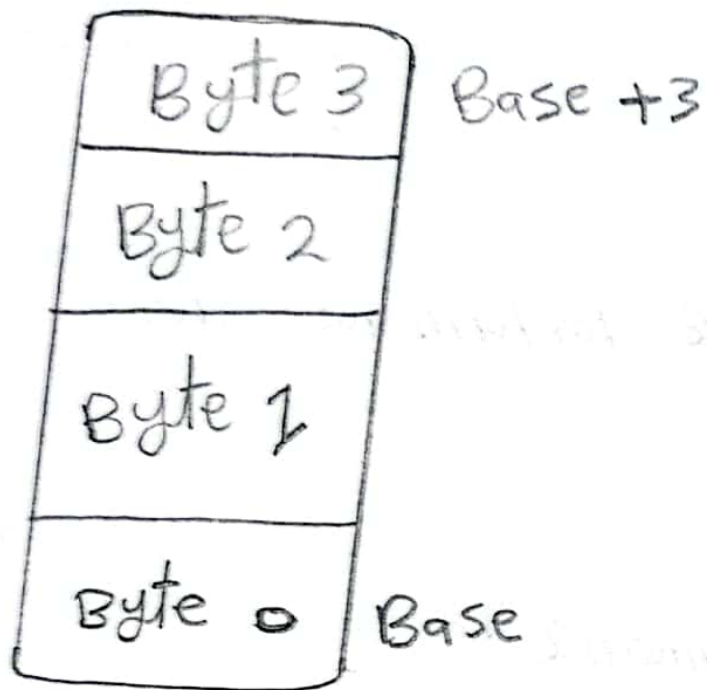 Byte 3 Base +3
Byte 2
Byte 1
Byte 0 Base